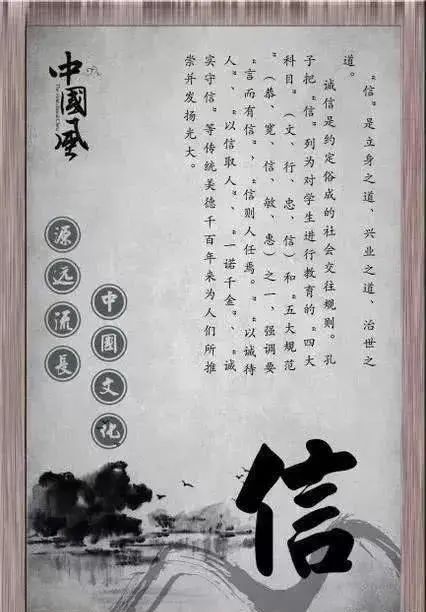 “信”是立身之道、兴业之道、治世之
道。
诚信是约定俗成的社会交往规则。孔
子把“信”列为对学生进行教育的“四大
科目”（文、行、忠、信）和“五大规范
”（恭、宽、信、敏、惠）之一，强调要
“言而有信”、“信则人任焉。”“以诚待
人”、“以信取人”、“一诺千金”、“诚
实守信”等传统美德千百年来为人们所推
崇并发扬光大。
中國风
中國文化
源远流長
信